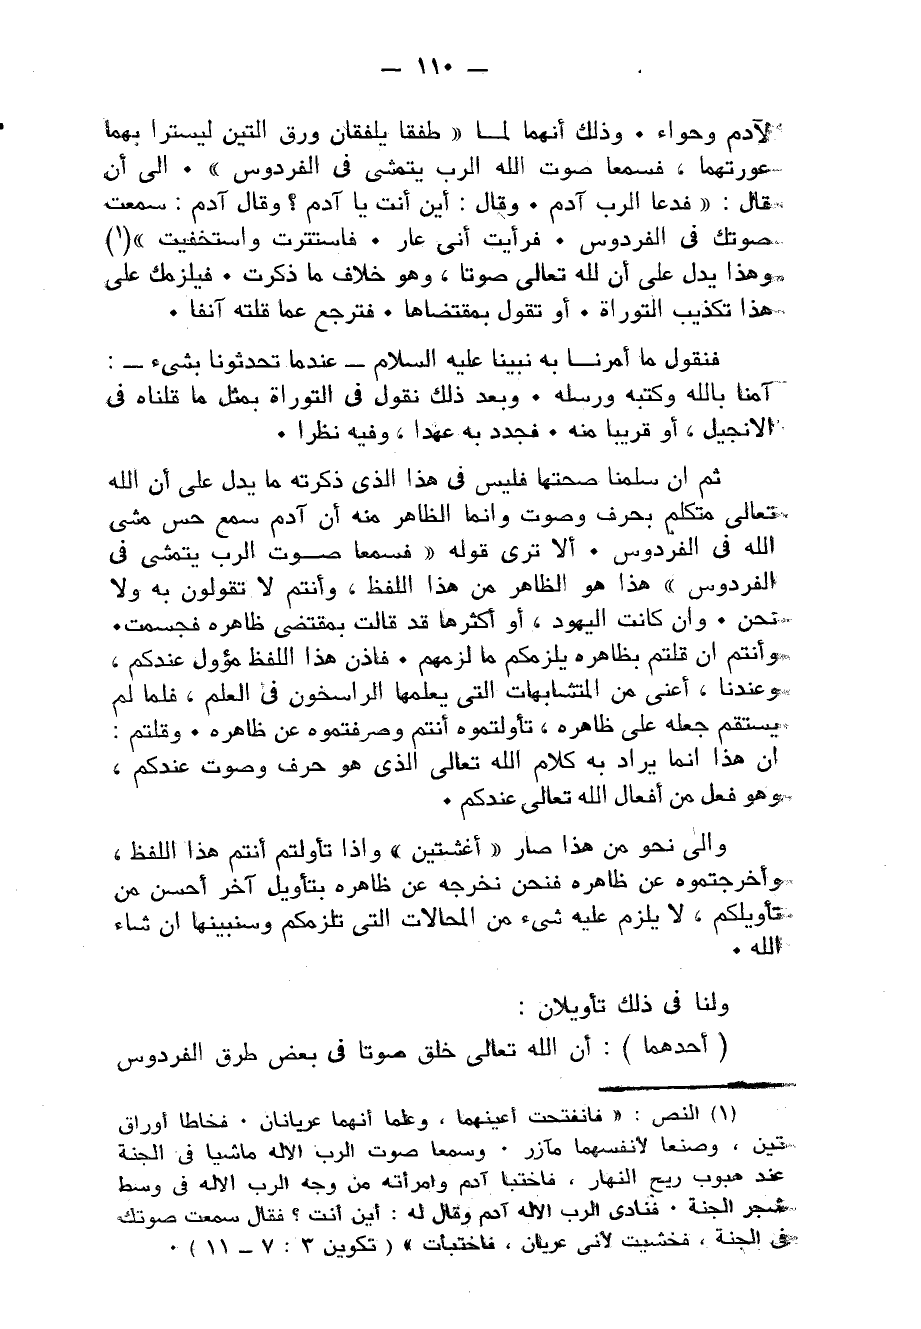 — ١١٠ —
لآدم وحواء ٠ وذلك أنهما لمــا « طفقا يلفقان ورق التين ليسترا بهما
عورتهما ، فسمعا صوت الله الرب يتمشى فى الفردوس » ٠ الى أن
قال : « فدعا الرب آدم ٠ وقال : أين أنت يا آدم ؟ وقال آدم : سمعت
صوتك فى الفردوس ٠ فرأيت أنى عار ٠ فاستترت واستخفيت »(١)
وهذا يدل على أن لله تعالى صوتا ، وهو خلاف ما ذكرت ٠ فيلزمك على
هذا تكذيب التوراة ٠ أو تقول بمقتضاها ٠ فترجع عما قلته آنفا ٠
فنقول ما أمرنــا به نبينا عليه السلام — عندما تحدثونا بشىء — :
آمنا بالله وكتبه ورسله ٠ وبعد ذلك نقول فى التوراة بمثل ما قلناه فى
الانجيل ، أو قريبا منه ٠ فجدد به عهدا ، وفيه نظرا ٠
ثم ان سلمنا صحتها فليس فى هذا الذى ذكرته ما يدل على أن الله
تعالى متكلم بحرف وصوت وانما الظاهر منه أن آدم سمع حس مشى
الله فى الفردوس ٠ ألا ترى قوله « فسمعا صــوت الرب يتمشى فى
الفردوس » هذا هو الظاهر من هذا اللفظ ، وأنتم لا تقولون به ولا
نحن ٠ وان كانت اليهود ، أو أكثرها قد قالت بمقتضى ظاهره فجسمت٠
وأنتم ان قلتم بظاهره يلزمكم ما لزمهم ٠ فاذن هذا اللفظ مؤول عندكم ،
وعندنا ، أعنى من المتشابهات التى يعلمها الراسخون فى العلم ، فلما لم
يستقم جعله على ظاهره ، تأولتموه أنتم وصرفتموه عن ظاهره ٠ وقلتم :
ان هذا انما يراد به كلام الله تعالى الذى هو حرف وصوت عندكم ،
وهو فعل من أفعال الله تعالى عندكم ٠
والى نحو من هذا صار « أغشتين » واذا تأولتم أنتم هذا اللفظ ،
وأخرجتموه عن ظاهره فنحن نخرجه عن ظاهره بتأويل آخر أحسن من
تأويلكم ، لا يلزم عليه شىء من المحالات التى تلزمكم وسنبينها ان شاء
الله ٠
ولنا فى ذلك تأويلان :
( أحدهما ) : أن الله تعالى خلق صوتا فى بعض طرق الفردوس
(١) النص : « فانفتحت أعينهما ، وعلما أنهما عريانان ٠ فخاطا أوراق
تين ، وصنعا لأنفسهما مآزر ٠ وسمعا صوت الرب الاله ماشيا فى الجنة
عند هبوب ريح النهار ، فاختبا آدم وامرأته من وجه الرب الاله فى وسط
شجر الجنة ٠ فنادى الرب الاله آدم وقال له : أين أنت ؟ فقال سمعت صوتك
فى الجنة ، فخشيت لأنى عريان ، فاختبأت » ( تكوين ٣ : ٧ — ١١ ) ٠